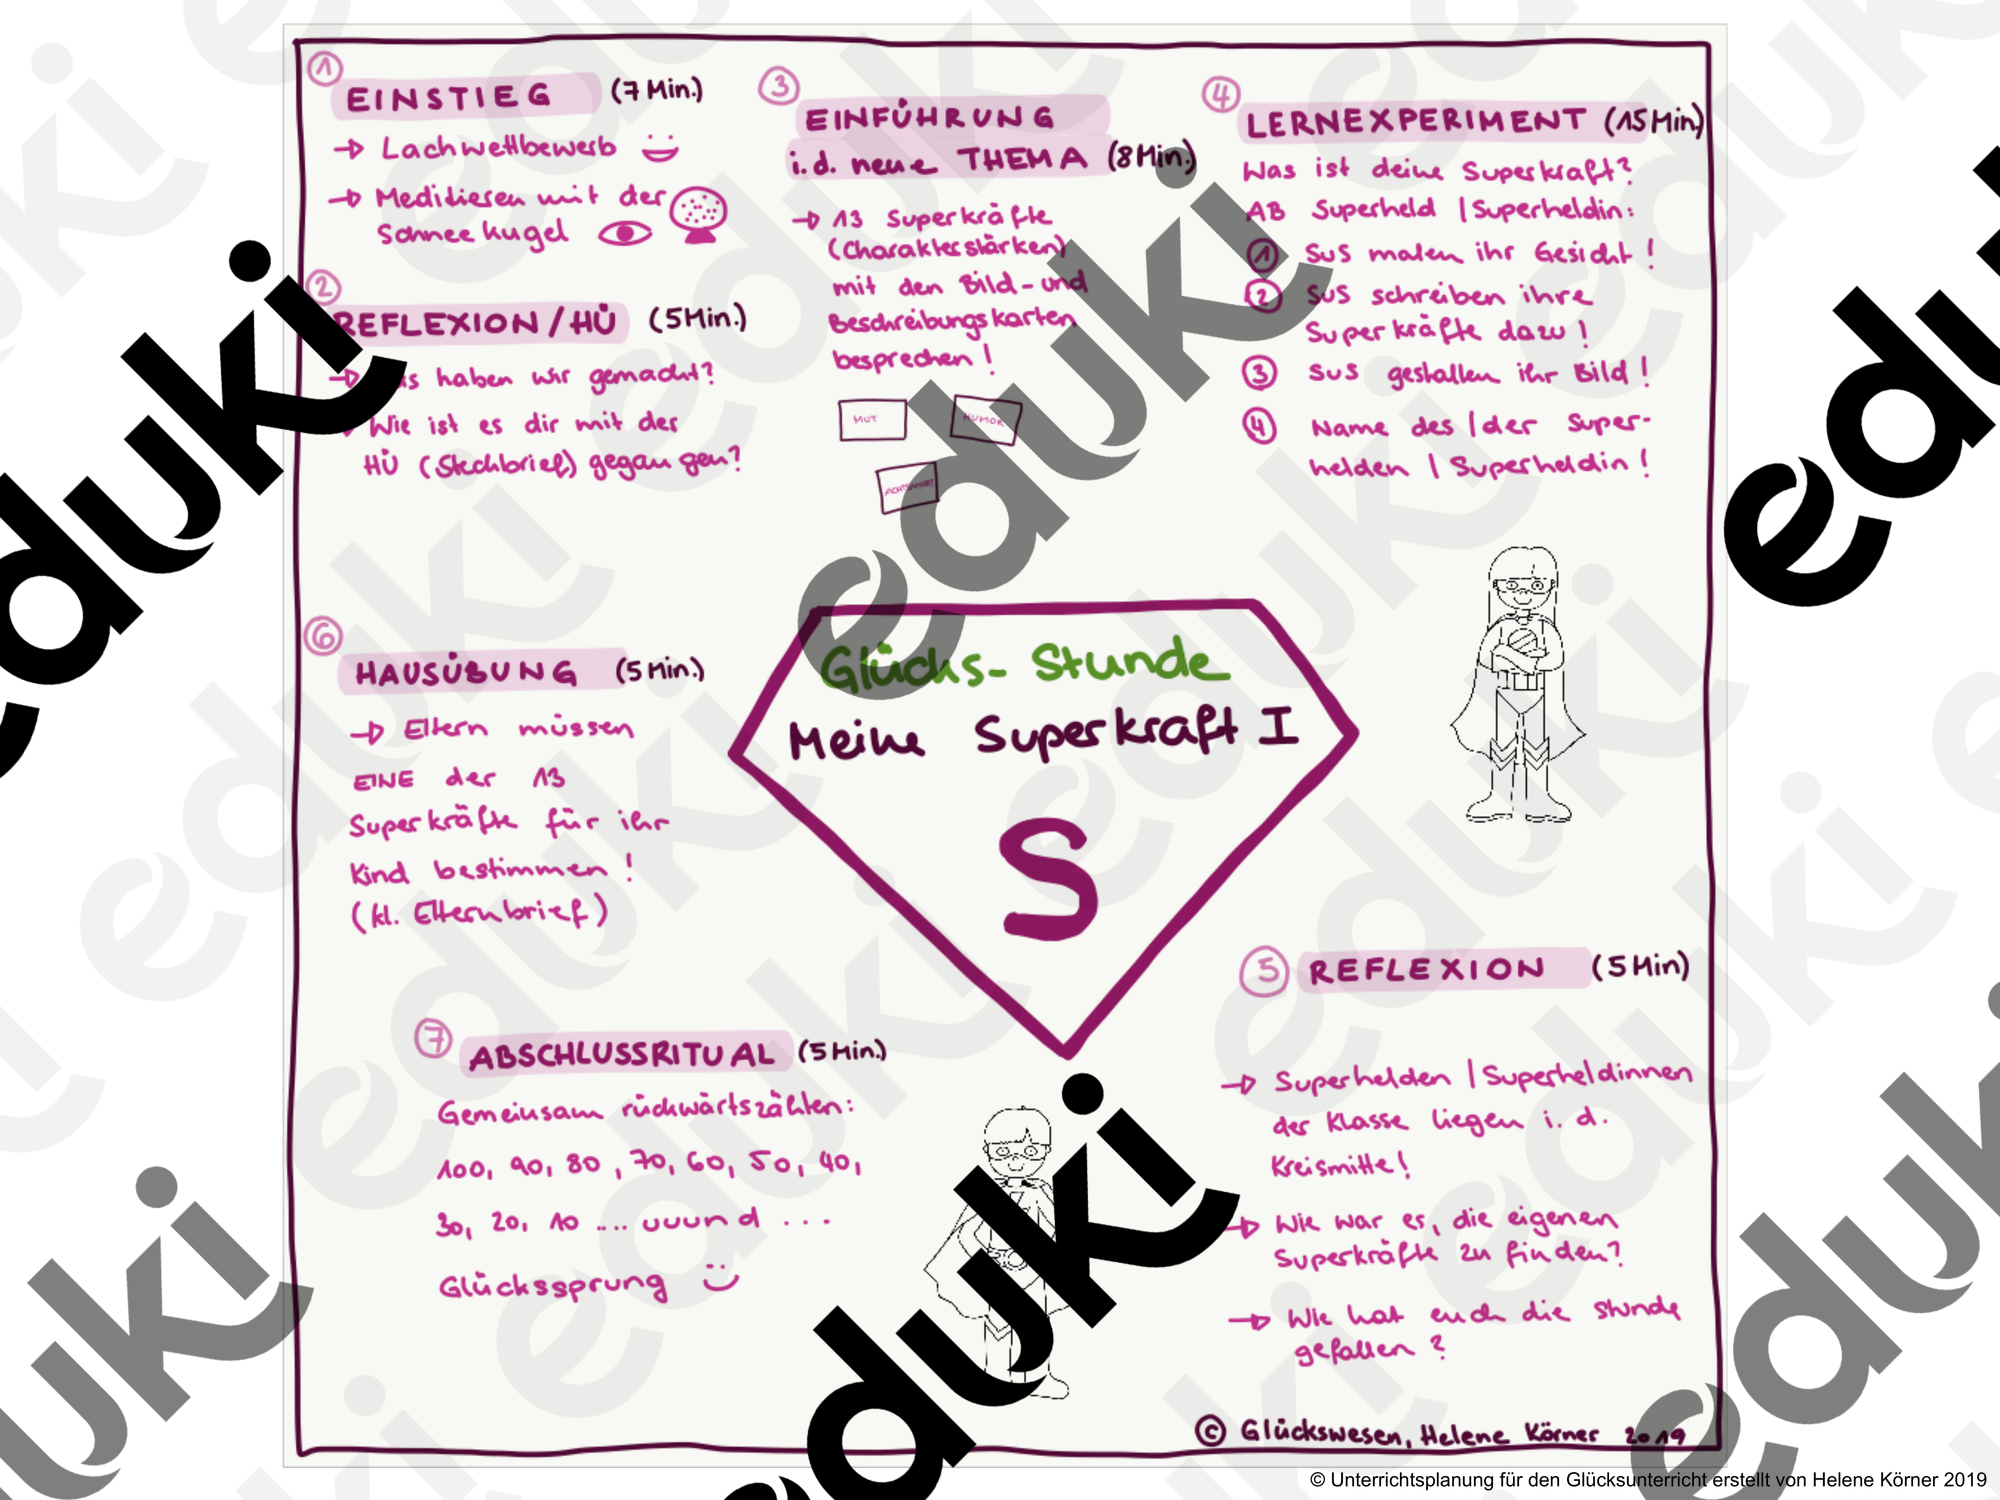 1
EINSTIEG (7 Min.)
→ Lachwettbewerb
→ Meditieren mit der
Schneekugel
2
REFLEXION / HÜ (5 Min.)
→ haben wir gemacht?
Wie ist es dir mit der
HÜ (Steckbrief) gegangen?
3
EINFÜHRUNG
i.d. neue THEMA (8 Min.)
→ 13 Superkräfte
(Charakterstärken)
mit den Bild- und
Beschreibungskarten
besprechen!
MUT
HUMOR
ACHTSAMKEIT
4
LERNEXPERIMENT (15 Min)
Was ist deine Superkraft?
AB Superheld / Superheldin:
1 SuS malen ihr Gesicht!
2 SuS schreiben ihre
Superkräfte dazu!
3 SuS gestalten ihr Bild!
4 Name des / der Super-
helden / Superheldin!
Glücks-Stunde
Meine Superkraft I
S
5
REFLEXION (5 Min)
→ Superhelden / Superheldinnen
der Klasse liegen i. d.
Kreismitte!
→ Wie war es, die eigenen
Superkräfte zu finden?
→ Wie hat euch die Stunde
gefallen?
6
HAUSÜBUNG (5 Min.)
→ Eltern müssen
EINE der 13
Superkräfte für ihr
Kind bestimmen!
(kl. Elternbrief)
7
ABSCHLUSSRITUAL (5 Min.)
Gemeinsam rückwärtszählen:
100, 90, 80, 70, 60, 50, 40,
30, 20, 10 .... uuund ...
Glückssprung
© Glückswesen, Helene Körner 2019
© Unterrichtsplanung für den Glücksunterricht erstellt von Helene Körner 2019
eduki
eduki
eduki
eduki
eduki
eduki